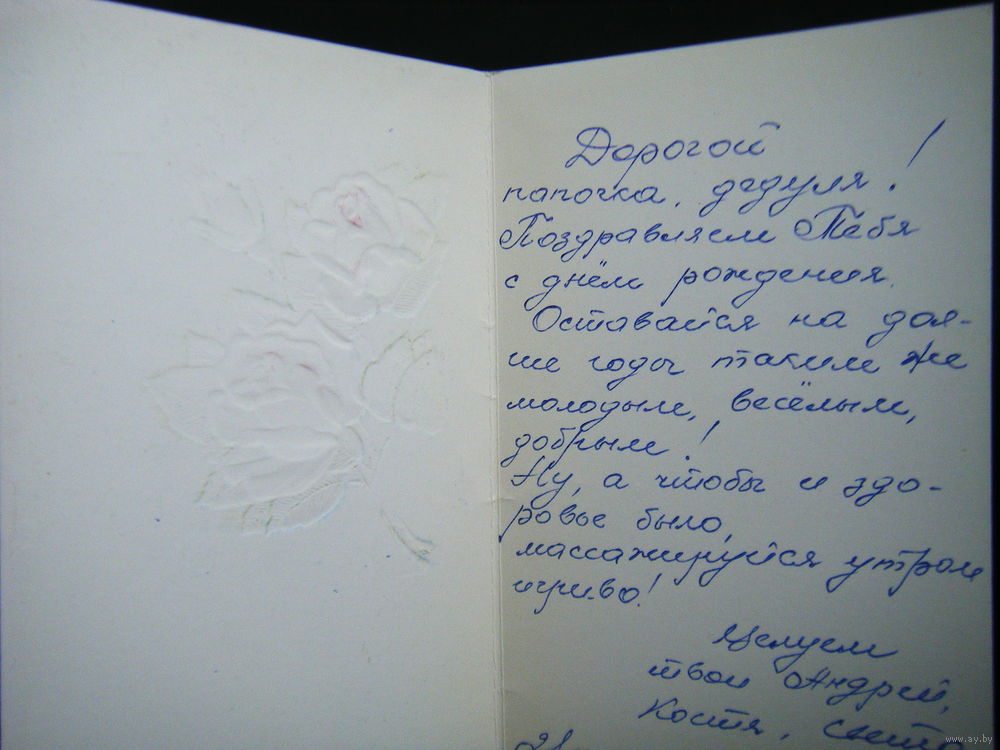 Дорогой
папочка, дедуля!
Поздравляем Тебя
с днём рождения.
Оставайся на дол-
ше годы таким же
молодым, весёлым,
добрым!
Ну, а чтобы и здо-
ровье было,
массажируйся утром
игриво!
Целуем
твои Андрей,
Костя,
www.ay.by